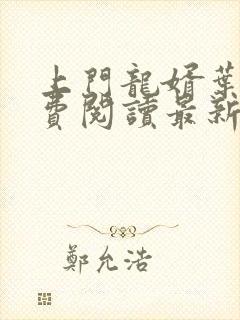 上門龍婿葉
費閱讀最新
鄭允浩